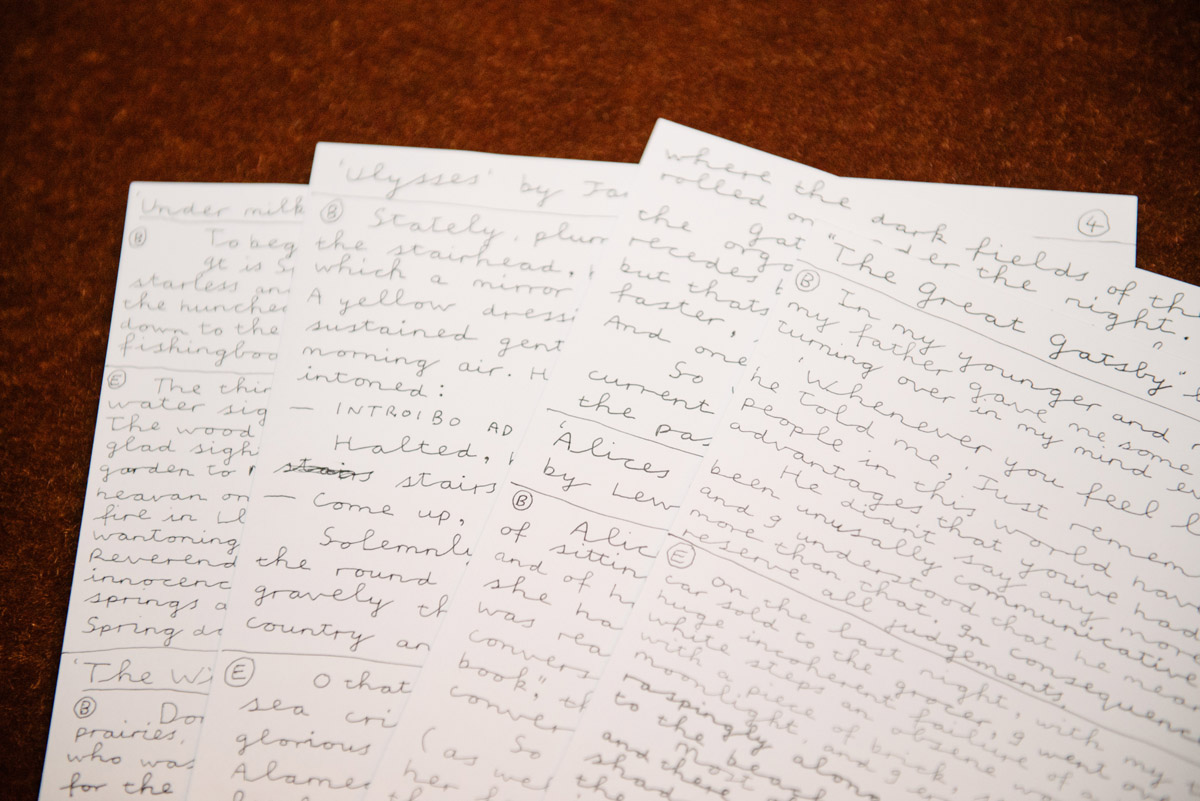 'Under milk
B
To beg
starless an
the hunche
down to the
fishingboa
E
The thir
water sig
The wood
glad sigh
garden to
heavan on
fire in Ll
wantoning
Reverend
innocenc
springs a
Spring da
'The Wi
B
Dor
prairies,
who was
for the
'Ulysses' by Ja
B
Stately, plum
the stairhead,
which a mirror
A yellow dressi
sustained gent
morning air. H
intoned:
— INTROIBO AD
Halted,
stairs stairs
— Come up,
Solemnly
the round
gravely th
country an
E
O that
sea cri
glorious
Alamed
the
recedes
but thats
faster,
And one
So
current
the pa
'Alices
by Lew
B
Alic
of sittin
and of h
she ha
was rea
convers
book," th
conver
So
(as we
her
4
where the dark fields of th
rolled on er the night".
"The great gatsby"
B
In my younger and
my father gave me some
turning over in my mind ev
'Whenever you feel l
he told me, 'Just remem
people in this word have
advantages that you've had
He didn't say any mor
been unusally communicative
and I understood that he mean
more than that. In consequenc
reserve all judgements.
E
On the last night, with my
car sold to the grocer, I went ov
huge incoherent failure of a
white steps an obsene wo
with a piece of brick,
moonlight, and I er
raspingly along
to the beach
and most
shad